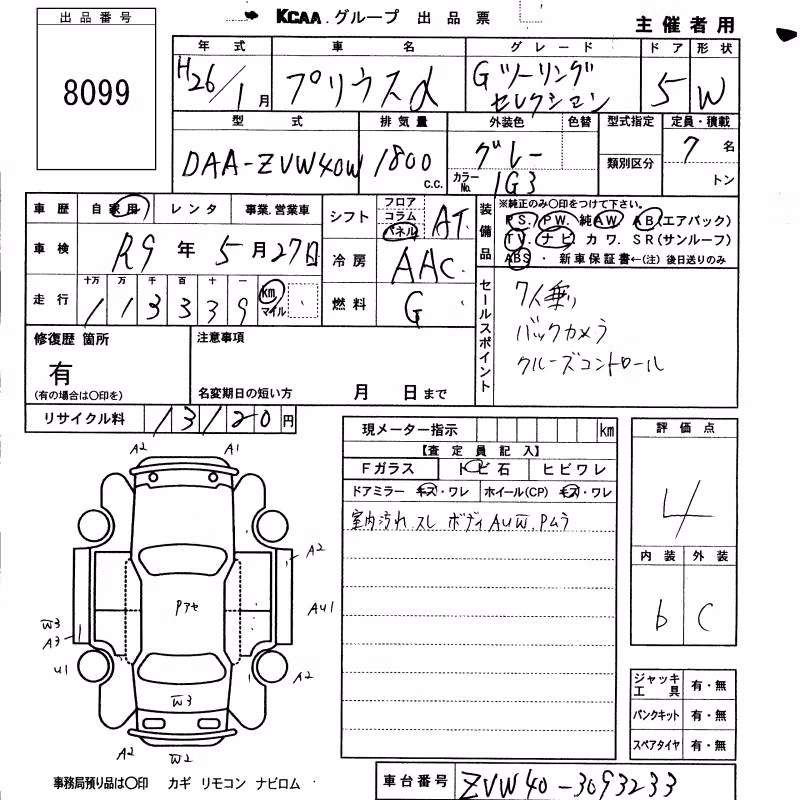 KCAA.グループ 出品票
主催者用
出品番号
8099
年式 車名 グレード ドア 形状
H26/1月 プリウスα Gツーリング
セレクション 5 W
型式 排気量 外装色 色替 型式指定 定員・積載
DAA-ZVW40W 1800 C.C. グレー 7名
カラーNo. 1G3 類別区分 トン
車歴 自家用 レンタ 事業.営業車
車検 R9年5月27日
走行 十万 万 千 百 十 一
113339 km マイル
シフト フロア コラム パネル AT
冷房 AAC
燃料 G
装備品
※純正のみ○印をつけて下さい。
PS. PW. 純AW AB(エアバック)
TV. ナビ カワ. SR(サンルーフ)
ABS ・ 新車保証書←(注) 後日送りのみ
セールスポイント
7人乗り
バックカメラ
クルーズコントロール
修復歴 箇所
有
(有の場合は○印を)
注意事項
名変期日の短い方 月 日まで
リサイクル料 13120円
現メーター指示 km
【査定員記入】
Fガラス トビ石 ヒビワレ
ドアミラー キズ・ワレ ホイール(CP) キズ・ワレ
室内汚れ スレ ボディAUW.Pムラ
評価点
4
内装 外装
b C
A2 A1
A2
Pアセ AU1
W3
A3
U1 A2
W3
A2 W2
ジャッキ
工具 有・無
パンクキット 有・無
スペアタイヤ 有・無
事務局預り品は○印 カギ リモコン ナビロム
車台番号 ZVW40-3093233